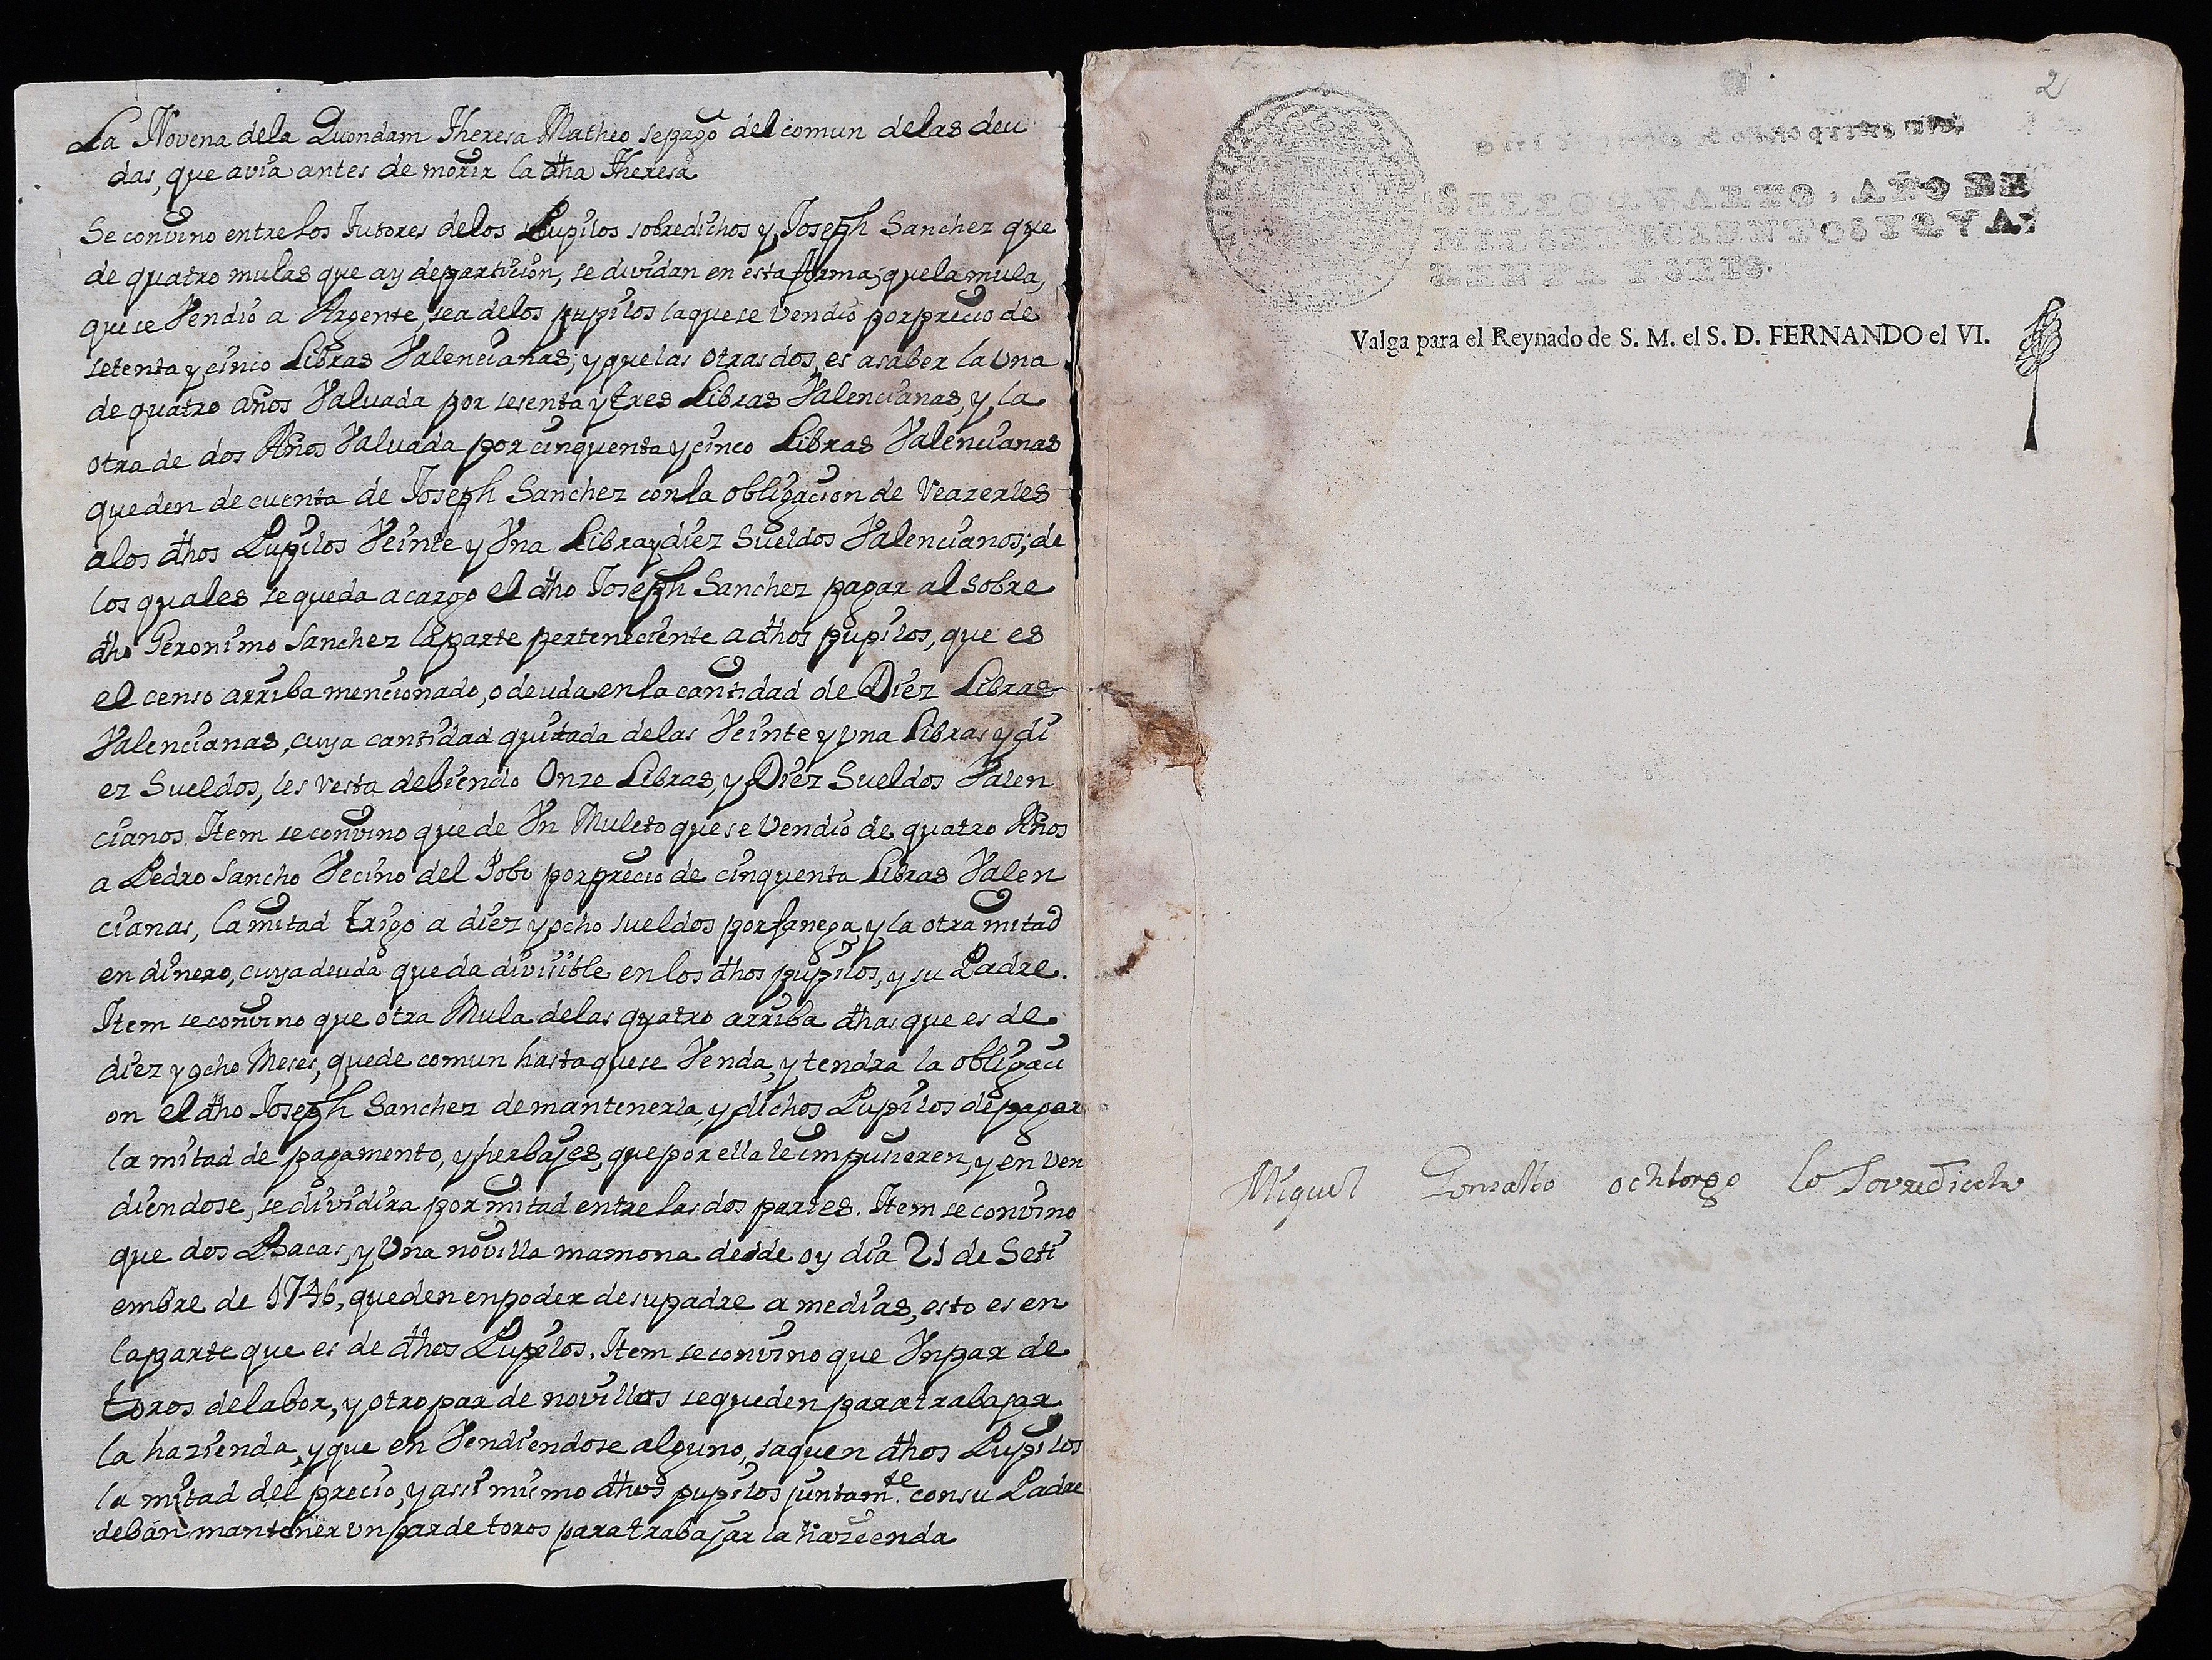 La Novena dela Quondam Theresa Matheo sepagó del comun delas deu
das, que avia antes de morir la dha Theresa
Se convino entre los Tutores delos Pupilos sobredichos y Joseph Sanchez que
de quatro mulas que ay departicion, se dividan en esta forma, quela mula,
que se Vendió a Argente, sea delos pupilos laquese Vendió porprecio de
setenta y cinco Libras Valencianas; y quelas otras dos, es asaber la Una
de quatro años Valuada por sesenta y tres Libras Valencianas, y la
otra de dos Años Valuada por cinquenta y cinco Libras Valencianas
queden de cuenta de Joseph Sanchez con la obligacion de reazerles
alos dhos Pupilos Veinte y Vna Libra y diez Sueldos Valencianos; de
los quales se queda acargo el dho Joseph Sanchez pagar al sobre
dho Geronimo Sanchez la parte perteneciente a dhos pupilos, que es
el censo arriba mencionado, o deuda en la cantidad de Diez Libras
Valencianas, cuya cantidad quitada delas Veinte y Una Libras y di
ez Sueldos, les resta debiendo Onze Libras, y Diez Sueldos Valen
cianos. Item se convino que de Vn Muleto que se Vendió de quatro Años
a Pedro Sancho Vecino del Pobo por precio de cinquenta Libras Valen
cianas, la mitad trigo a diez y ocho sueldos por fanega, y la otra mitad
en dinero, cuya deuda queda divisible en los dhos pupilos, y su Padre.
Item se convino que otra Mula delas quatro arriba dhas que es de
diez y ocho Meses, quede comun hasta quese Venda, y tendra la obligaci
on el dho Joseph Sanchez de mantenerla, y dichos Pupilos de pagar
la mitad de pagamento, y herbajes, que por ella le impusieren, y en Ven
diendose, se dividira por mitad entre las dos partes. Item se convino
que dos Bacas, y Una novilla mamona desde oy dia 21 de Seti
embre de 1746, queden en poder de su padre a medias, esto es en
la parte que es de dhos Pupilos. Item se convino que Vn par de
toros de labor, y otro par de novillos se queden para trabajar
la hazienda, y que en Vendiendose alguno, saquen dhos Pupilos
la mitad del precio, y assi mismo dhos pupilos juntamte. con su Padre
deban mantener un par de toros para trabajar la hazienda
2
SELLO QVARTO, AÑO DE
MIL SETECIENTOS Y QVA-
RENTA Y SEIS.
Valga para el Reynado de S. M. el S. D. FERNANDO el VI.
Miguel Gonzalbo